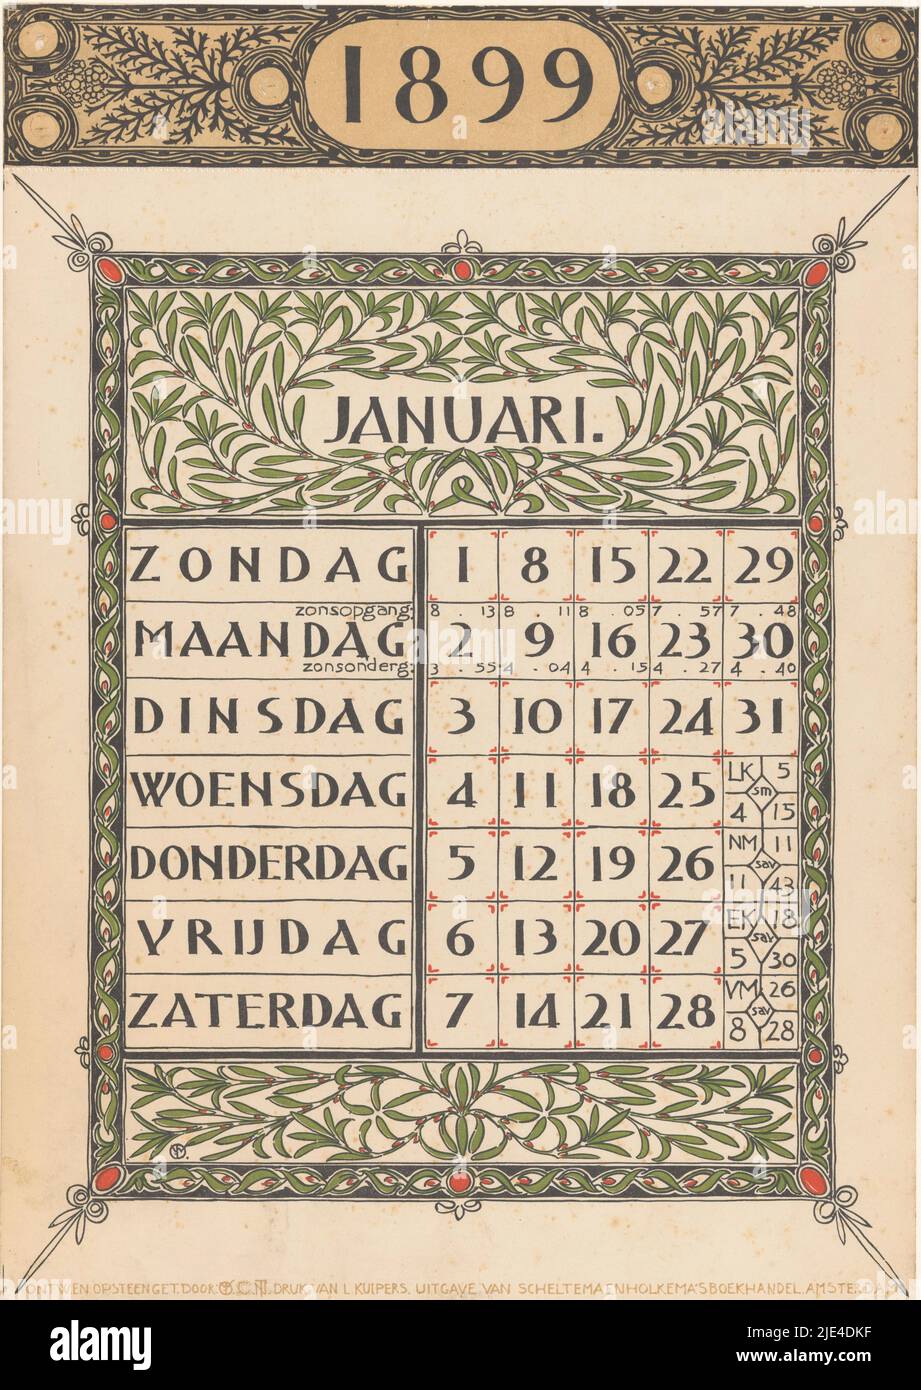 1899
JANUARI.
ZONDAG 1 8 15 22 29
zonsopgang: 8 . 13 8 . 11 8 . 05 7 . 57 7 . 48
MAANDAG 2 9 16 23 30
zonsonderg: 3 . 55 4 . 04 4 . 15 4 . 27 4 . 40
DINSDAG 3 10 17 24 31
WOENSDAG 4 11 18 25 LK 5 sm 4 15
DONDERDAG 5 12 19 26 NM 11 sav 11 43
VRIJDAG 6 13 20 27 EK 18 sav 5 30
ZATERDAG 7 14 21 28 VM 26 sav 8 28
ONTW EN OP STEEN GET. DOOR: DRUK VAN L KUIPERS. UITGAVE VAN SCHELTEMA EN HOLKEMA'S BOEKHANDEL. AMSTERDAM
alamy
Image ID: 2JE4DKF
www.alamy.com